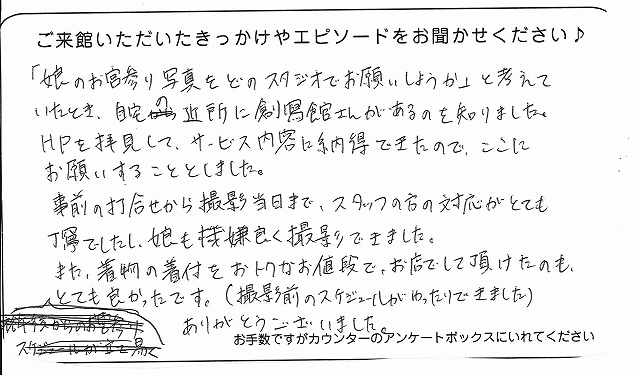 ご来館いただいたきっかけやエピソードをお聞かせください♪
「娘のお宮参り写真をどのスタジオでお願いしようか」と考えて
いたとき、自宅の近所に創寫館さんがあるのを知りました。
HPを拝見して、サービス内容に納得できたので、ここに
お願いすることとしました。
事前の打合せから撮影当日まで、スタッフの方の対応がとても
丁寧でしたし、娘も機嫌良く撮影できました。
また、着物の着付をおトクなお値段で、お店でして頂けたのも、
とても良かったです。(撮影前のスケジュールがゆったりできました)
ありがとうございました。
お手数ですがカウンターのアンケートボックスにいれてください